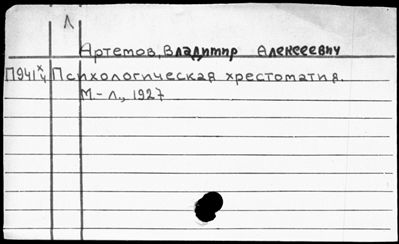 Л
Артемов, Владимир Алексеевич
П941 х/ч Психологическая хрестоматия.
М-Л., 1927